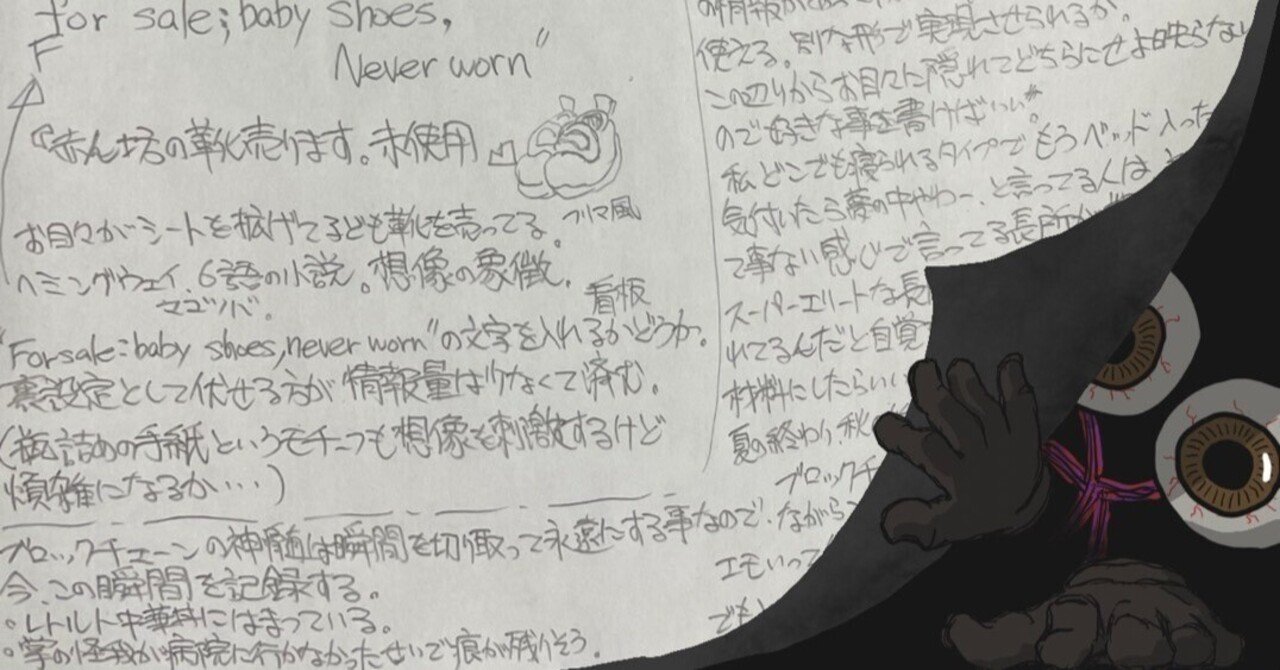 for sale; baby shoes,
F
Never worn”
『赤ん坊の靴売ります。未使用』
フリマ風
お目々がシートを拡げて子ども靴を売ってる。
ヘミングウェイ、6語の小説。想像の象徴。
マゴツバ。
看板
“For sale: baby shoes, never worn”の文字を入れるかどうか。
裏設定として伏せる方が情報量は少なくて済む。
(瓶詰めの手紙というモチーフも想像を刺激するけど
煩雑になるか・・・)
ブロックチェーンの神髄は瞬間を切り取って永遠にする事なので、ながら
今、この瞬間を記録する。
・レトルト中華丼にはまっている。
・掌の怪我が病院に行かなかったせいで痕が残りそう。
の情報が
使える。別な形で実現させられるか。
この辺りからお目々に隠れてどちらにせよ映らない
ので好きな事を書けばいい
私どこでも寝られるタイプでもうベッド入った
気付いたら夢の中やわー、と言ってる人は
て事ない感じで言ってる長所が
スーパーエリートな長
れてるんだと自覚
材料にしたらいい
夏の終わり、秋
ブロックチ
エモいって
でも